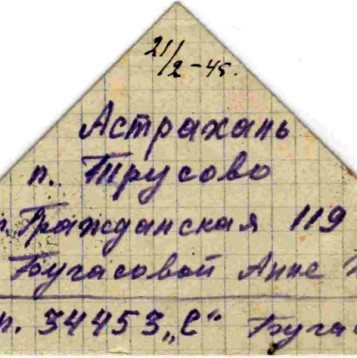 21/2-45.
Астрахань
п. Трусово
Гражданская 119
Бугасовой Анне
п. 34453 „С“ Буга